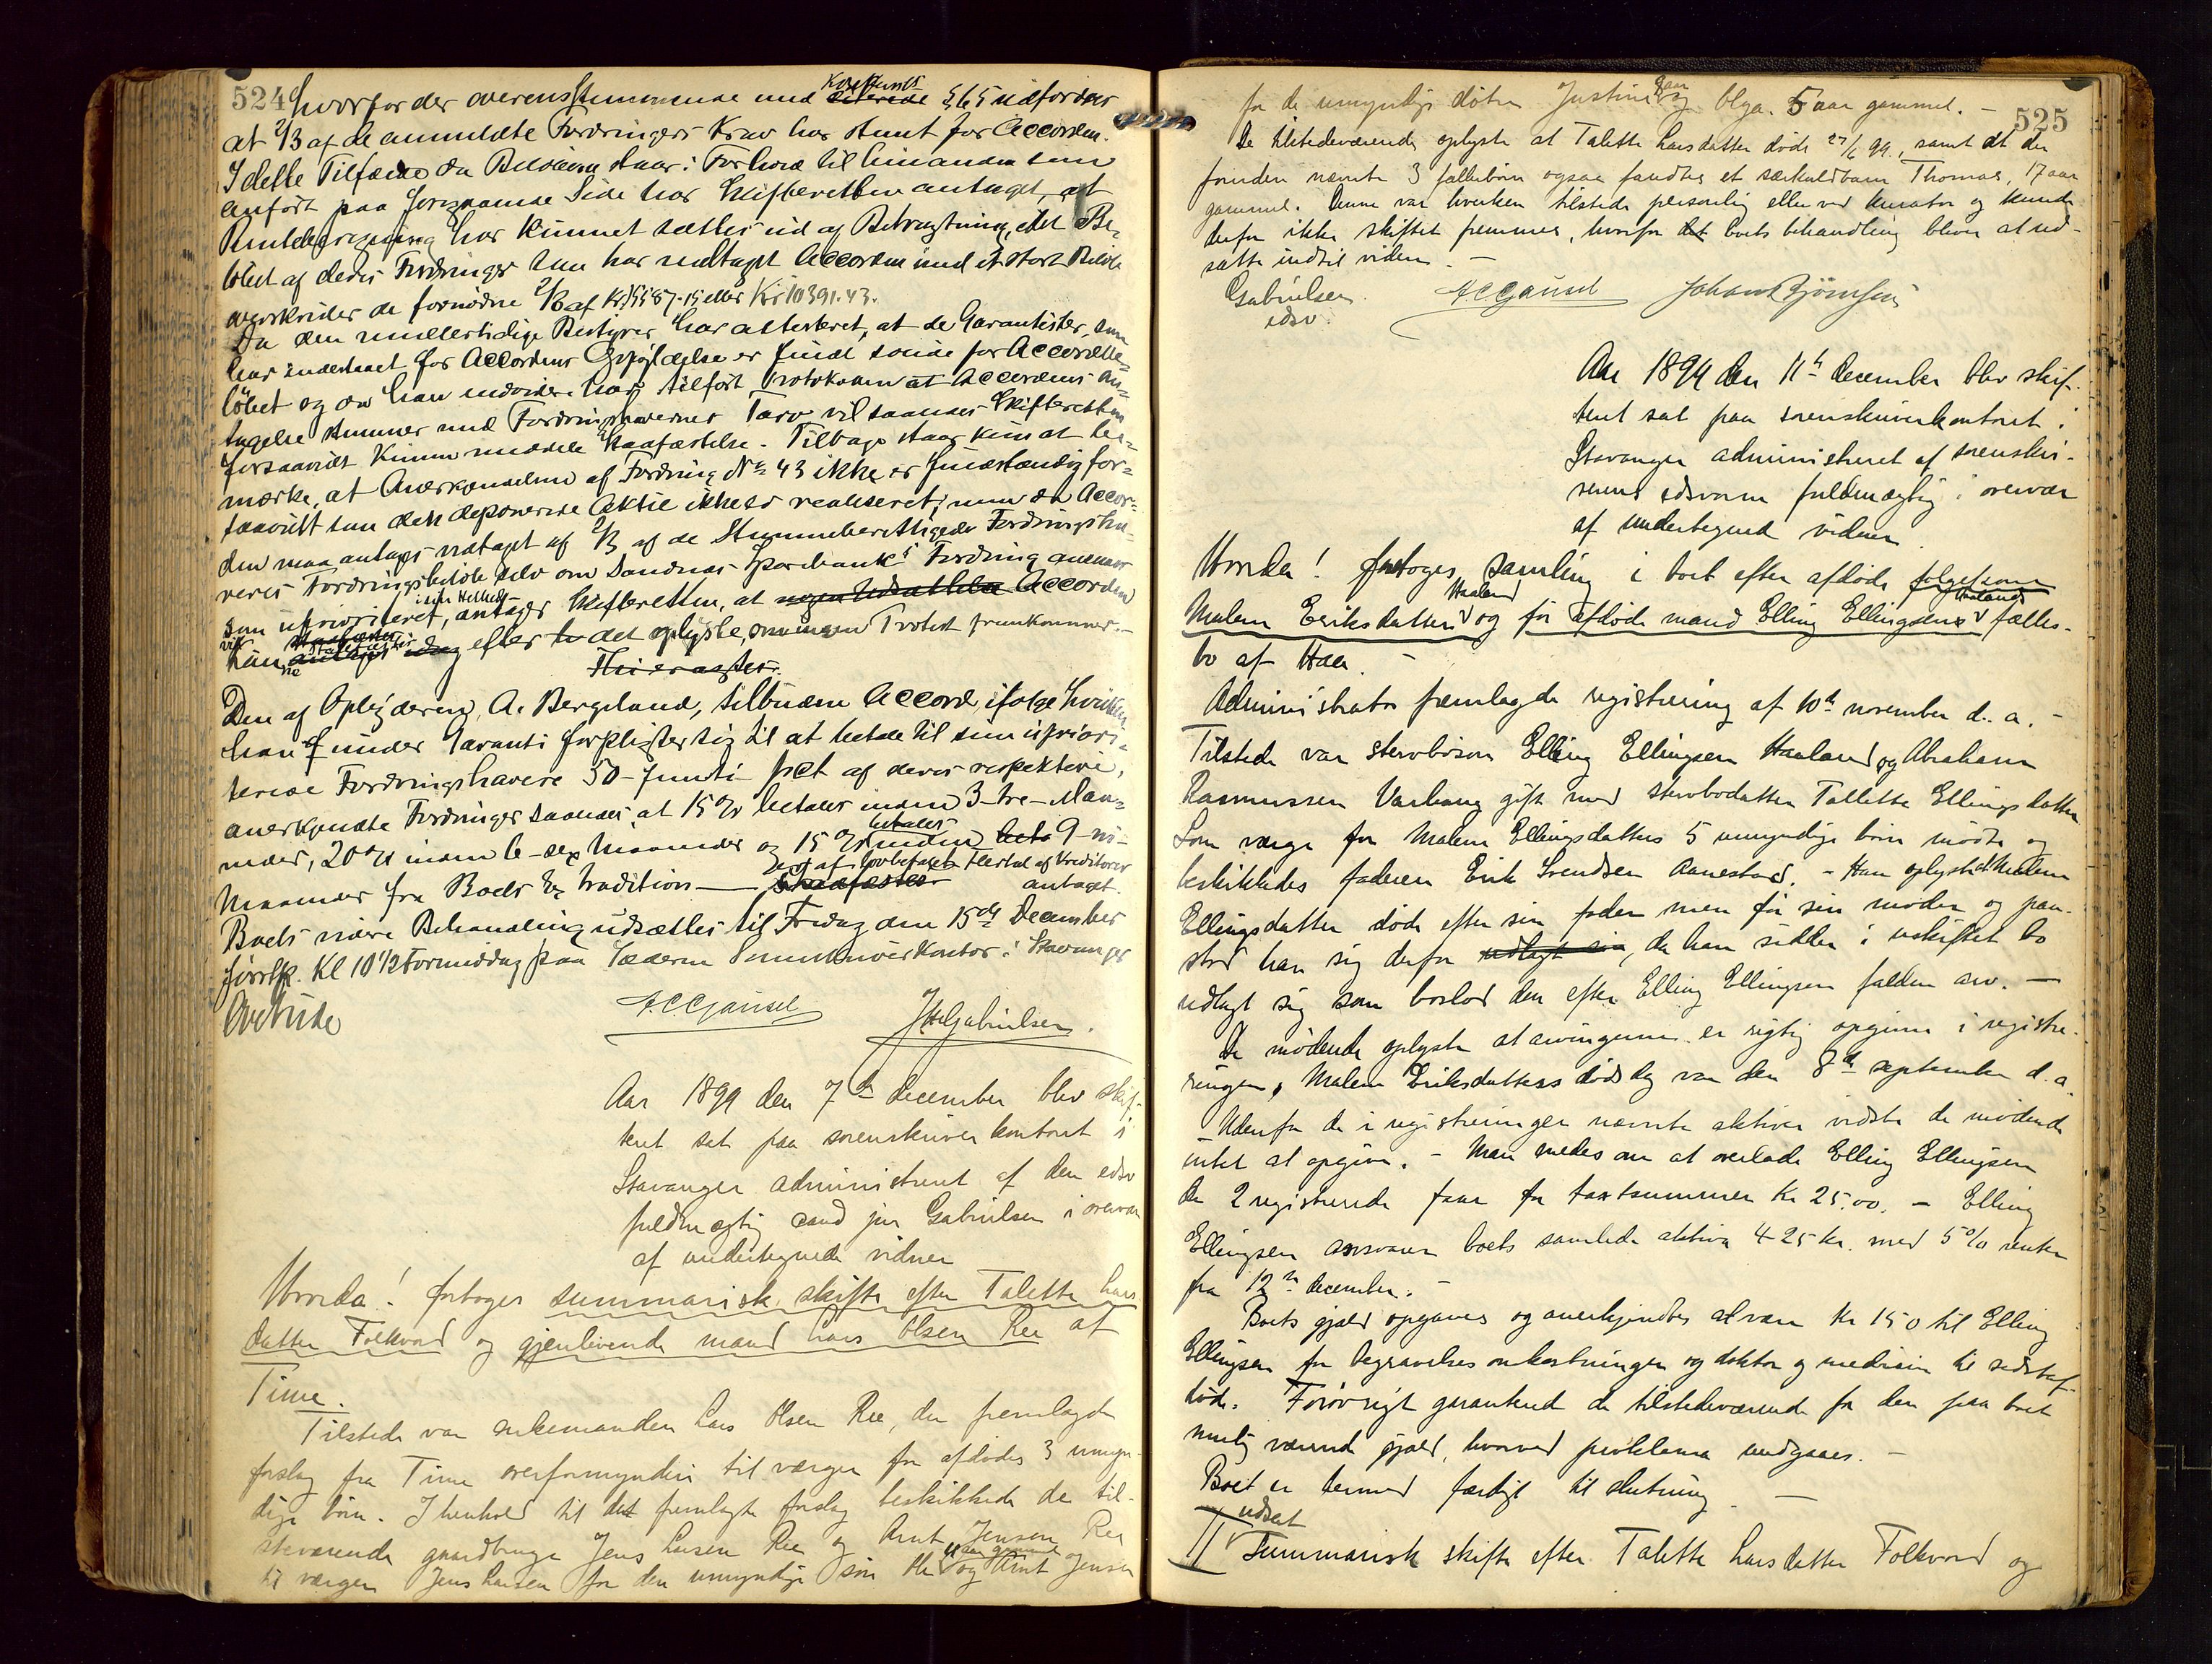 524
hvorfor der overensstemmende med Konkursl. citerede § 65 udfordrer
at 2/3 af de anmeldte Fordringers Krav har stemt for Accorden.
I dette Tilfælde da Beløbene staar i Forhold til hinanden som
anført paa foregaaende Side har Skifteretten antaget, at
Renteberegning har kunnet sættes ud af Betragtning, idet Be-
løbet af deres Fordringer som har vedtaget Accorden med et stort Beløb
overskrider de fornødne 2/3 af Kr. 15587.15 eller Kr 10391.43.
Da den midlertidige Bestyrer har attesteret, at de Garantister, som
har indestaaet for Accordens Opfyldelse er fuldt solide for Accordbe-
løbet og da han endvidere har tilført Protokollen at Accordens An-
tagelse stemmer med Fordringshavernes Tarv vil saaledes Skifteretten
forsaavidt kunne meddele Stadfæstelse. Tilbage staar kun at be-
mærke, at Anerkjendelsen af Fordring No 43 ikke er fuldstændig for-
saavidt som den deponerede Aktie ikke er realiseret; men da Accor-
den maa antages vedtaget af 2/3 af de Stemmeberettigede Fordringsha-
veres Fordringsbeløb selv om Sandnes Sparebank's Fordring ansees
som uprioriteret, i sin Helhed antager Skifteretten, at nogen Udsættelse Accorden
vil kunne stadfæstes idag efter det oplyste, om ingen Protest fremkommer.-
Thi eragtes:
Den af Opbyderen, A. Bergeland, tilbudne Accord, ifølge hvilken
han under Garanti forpligter sig til at betale til sine upriori-
terede Fordringshavere 50 - femti - pct af deres respektive,
anerkjendte Fordringer saaledes, at 15 % betales inden 3 - tre - Maa-
neder, 20 % inden 6 - sex Maaneder og 15 % betales inden 9 - ni -
Maaneder fra Boets Extradition — stadfæstes Det af lovbefalet Flertal af Kreditorer antaget.
Boets videre Behandling udsættes til Fredag den 15de December
førstk. Kl 10 1/2 Formiddag paa Jæderens Sorenskriverkontor i Stavanger
A.C. Gausel J. H. Gabrielsen.
Aar 1899 den 7de december blev skif-
teret sat paa sorenskriverkontoret i
Stavanger administreret af den edsv
fuldmægtig cand jur Gabrielsen i overvær
af undertegnede vidner
Hvorda! foretoges summarisk skifte efter Talette Lars
datter Folkvord og gjenlevende mand Lars Olsen Ree af
Time.
Tilstede var enkemanden Lars Olsen Ree, der fremlagde
forslag fra Time overformynderi til værger for afdødes 3 umyn-
dige børn. I henhold til det fremlagte forslag beskikkede de til-
steværende gaardbruger Jens Larsen Ree og Arnt Jensen Ree
til værger Jens Larsen for den umyndige søn Ole 11 aar gammel og Arnt Jensen
525
for de umyndige døtre Justine aar og Olga. 5 aar gammel. -
De tilstedeværende oplyste at Talette Larsdatter døde 27/6 99., samt at der
foruden nævnte 3 fællesbørn ogsaa fandtes et særkuldbarn Thomas, 17 aar
gammel. Denne var hverken tilstede personlig eller ved kurator og kunde
derfor ikke skiftet fremmes, hvorfor det boets behandling blev at ud-
sætte indtil videre. -
Gabrielsen A.C. Gausel Johan Bjørnsen
edsv.
Aar 1899 den 11te december blev skif-
teret sat paa sorenskriverkontoret i
Stavanger administreret af sorenskri-
verens edsvorne fuldmægtig i overvær
af undertegnede vidner.
Hvorda! foretoges samling i boet efter afdøde følgekone
Malene Eriksdatter Haaland og før afdøde mand Elling Ellingsens Haalands fælles-
bo af Haa. -
Administrator fremlagde registrering af 10de november d. a. -
Tilstede var stervbosøn Elling Ellingsen Haaland og Abraham
Rasmussen Varhaug gift med stervbodatter Tallette Ellingsdatter
Som værge for Malene Ellingsdatters 5 umyndige børn mødte og
beskikkedes faderen Erik Svendsen Aanestad. - Han oplyste at Malene
Ellingsdatter døde efter sin fader men før sin moder og paa-
stod han sig derfor udlagt sin, da han sidder i uskiftet bo
udlagt sig som boslod den efter Elling Ellingsen faldne arv. —
De mødende oplyste at arvingerne er rigtig opgivne i registre-
ringen, Malene Eriksdatters dødsdag var den 8de september d. a
Udenfor de i registreringen nævnte aktiver vidste de mødende
intet at opgive. - Man enedes om at overlade Elling Ellingsen
de 2 registrerede faar for taxtsummen Kr 25.00. - Elling
Ellingsen ansvarer boets samlede aktiva 425 kr. med 5 % renter
fra 12te december. -
Boets gjæld opgaves og anerkjendtes at være Kr 150 til Elling
Ellingsen for begravelsesomkostninger og doktor og medicin til sidstaf-
døde. Forøvrigt garanterede de tilstedeværende for den paa boet
mulig værende gjæld, hvorved proklama undgaaes. -
Boet er dermed færdigt til slutning. —
udsat
Summarisk skifte efter Talette Larsdatter Folkvord og